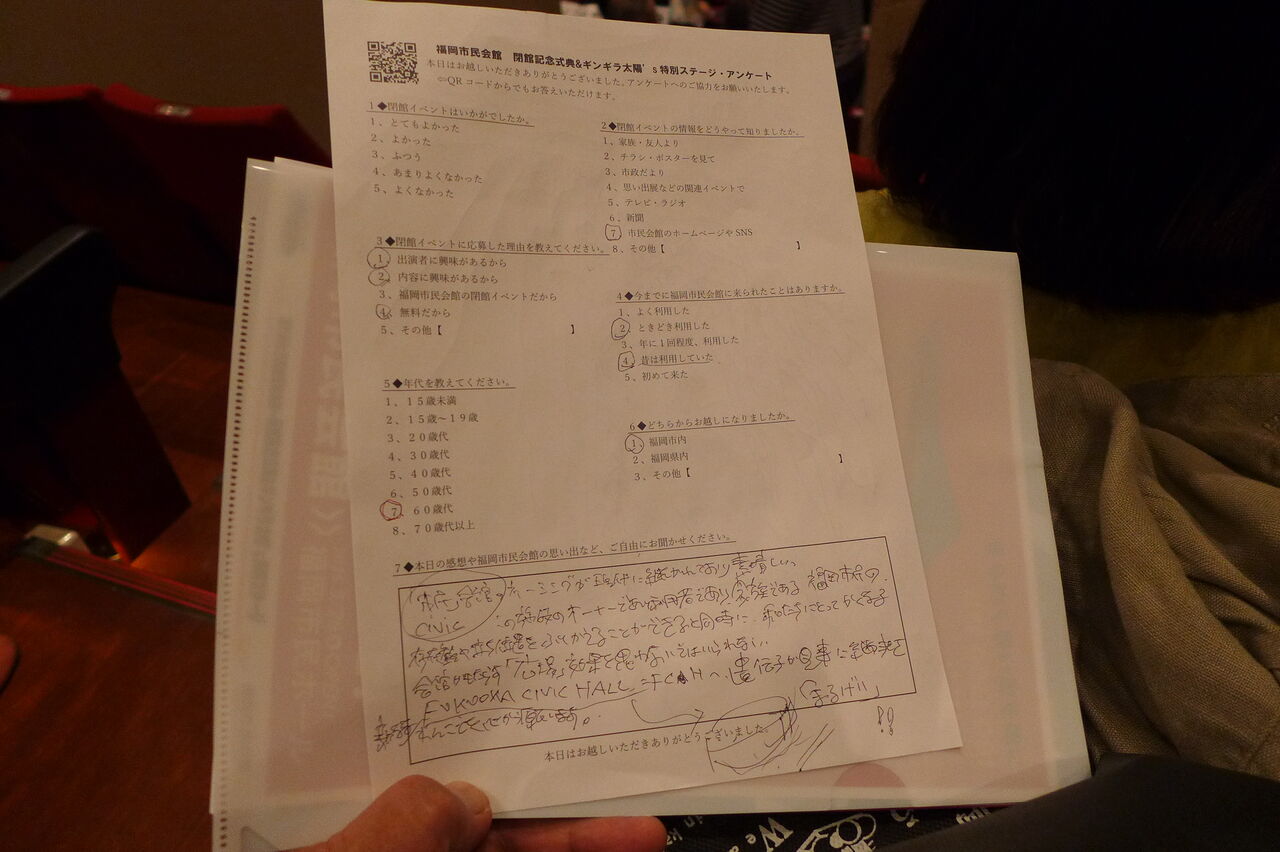 福岡市民会館　閉館記念式典&ギンギラ太陽's特別ステージ・アンケート
本日はお越しいただきありがとうございました。アンケートへのご協力をお願いいたします。
⇦QRコードからでもお答えいただけます。
1◆閉館イベントはいかがでしたか。
1、とてもよかった
2、よかった
3、ふつう
4、あまりよくなかった
5、よくなかった
2◆閉館イベントの情報をどうやって知りましたか。
1、家族・友人より
2、チラシ・ポスターを見て
3、市政だより
4、思い出展などの関連イベントで
5、テレビ・ラジオ
6、新聞
7、市民会館のホームページやSNS
8、その他【　】
3◆閉館イベントに応募した理由を教えてください。
1、出演者に興味があるから
2、内容に興味があるから
3、福岡市民会館の閉館イベントだから
4、無料だから
5、その他【　】
4◆今までに福岡市民会館に来られたことはありますか。
1、よく利用した
2、ときどき利用した
3、年に1回程度、利用した
4、昔は利用していた
5、初めて来た
5◆年代を教えてください。
1、15歳未満
2、15歳～19歳
3、20歳代
4、30歳代
5、40歳代
6、50歳代
7、60歳代
8、70歳代以上
6◆どちらからお越しになりましたか。
1、福岡市内
2、福岡県内
3、その他【　】
7◆本日の感想や福岡市民会館の思い出など、ご自由にお聞かせください。
市民会館のネーミングが
CIVIC この施設のオーナーであり利用者であり 福岡市の
ことができると同時に
会館 「広場」効果を
FUKUOKA CIVIC HALL = FCH へ 遺伝子が見事に
願います。 「まるげり」 !!
本日はお越しいただきありがとうございました。